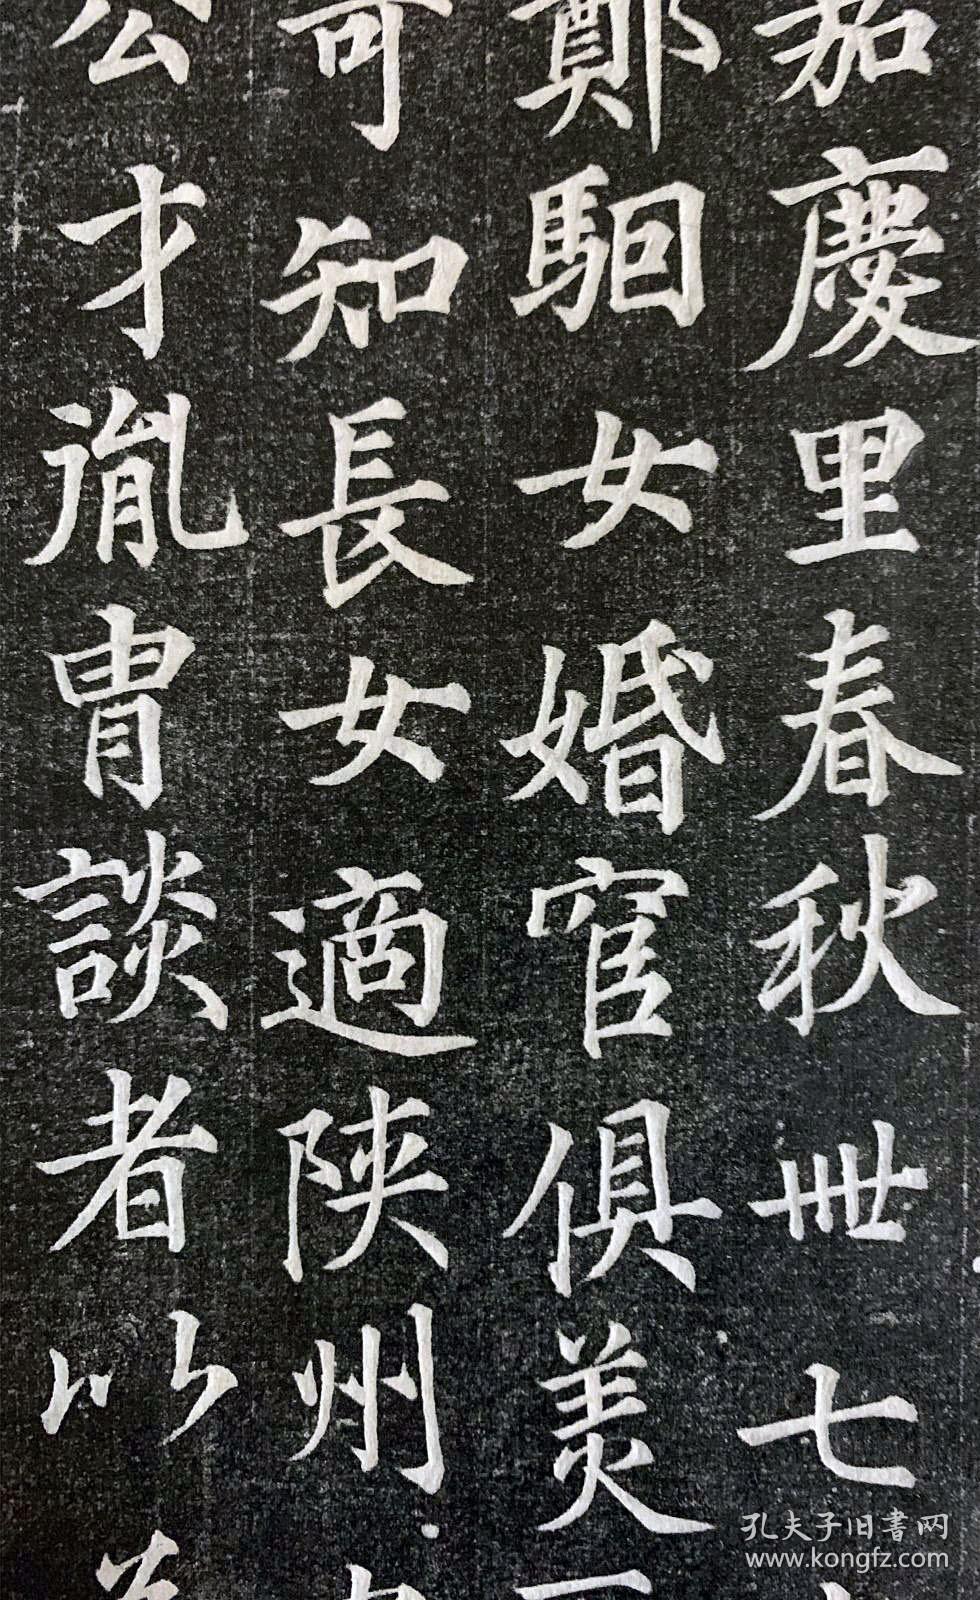 嘉慶里春秋卌七
鄭駰女婚官俱美
可知長女適陝州
公才胤胄談者以
孔夫子旧書网
www.kongfz.com